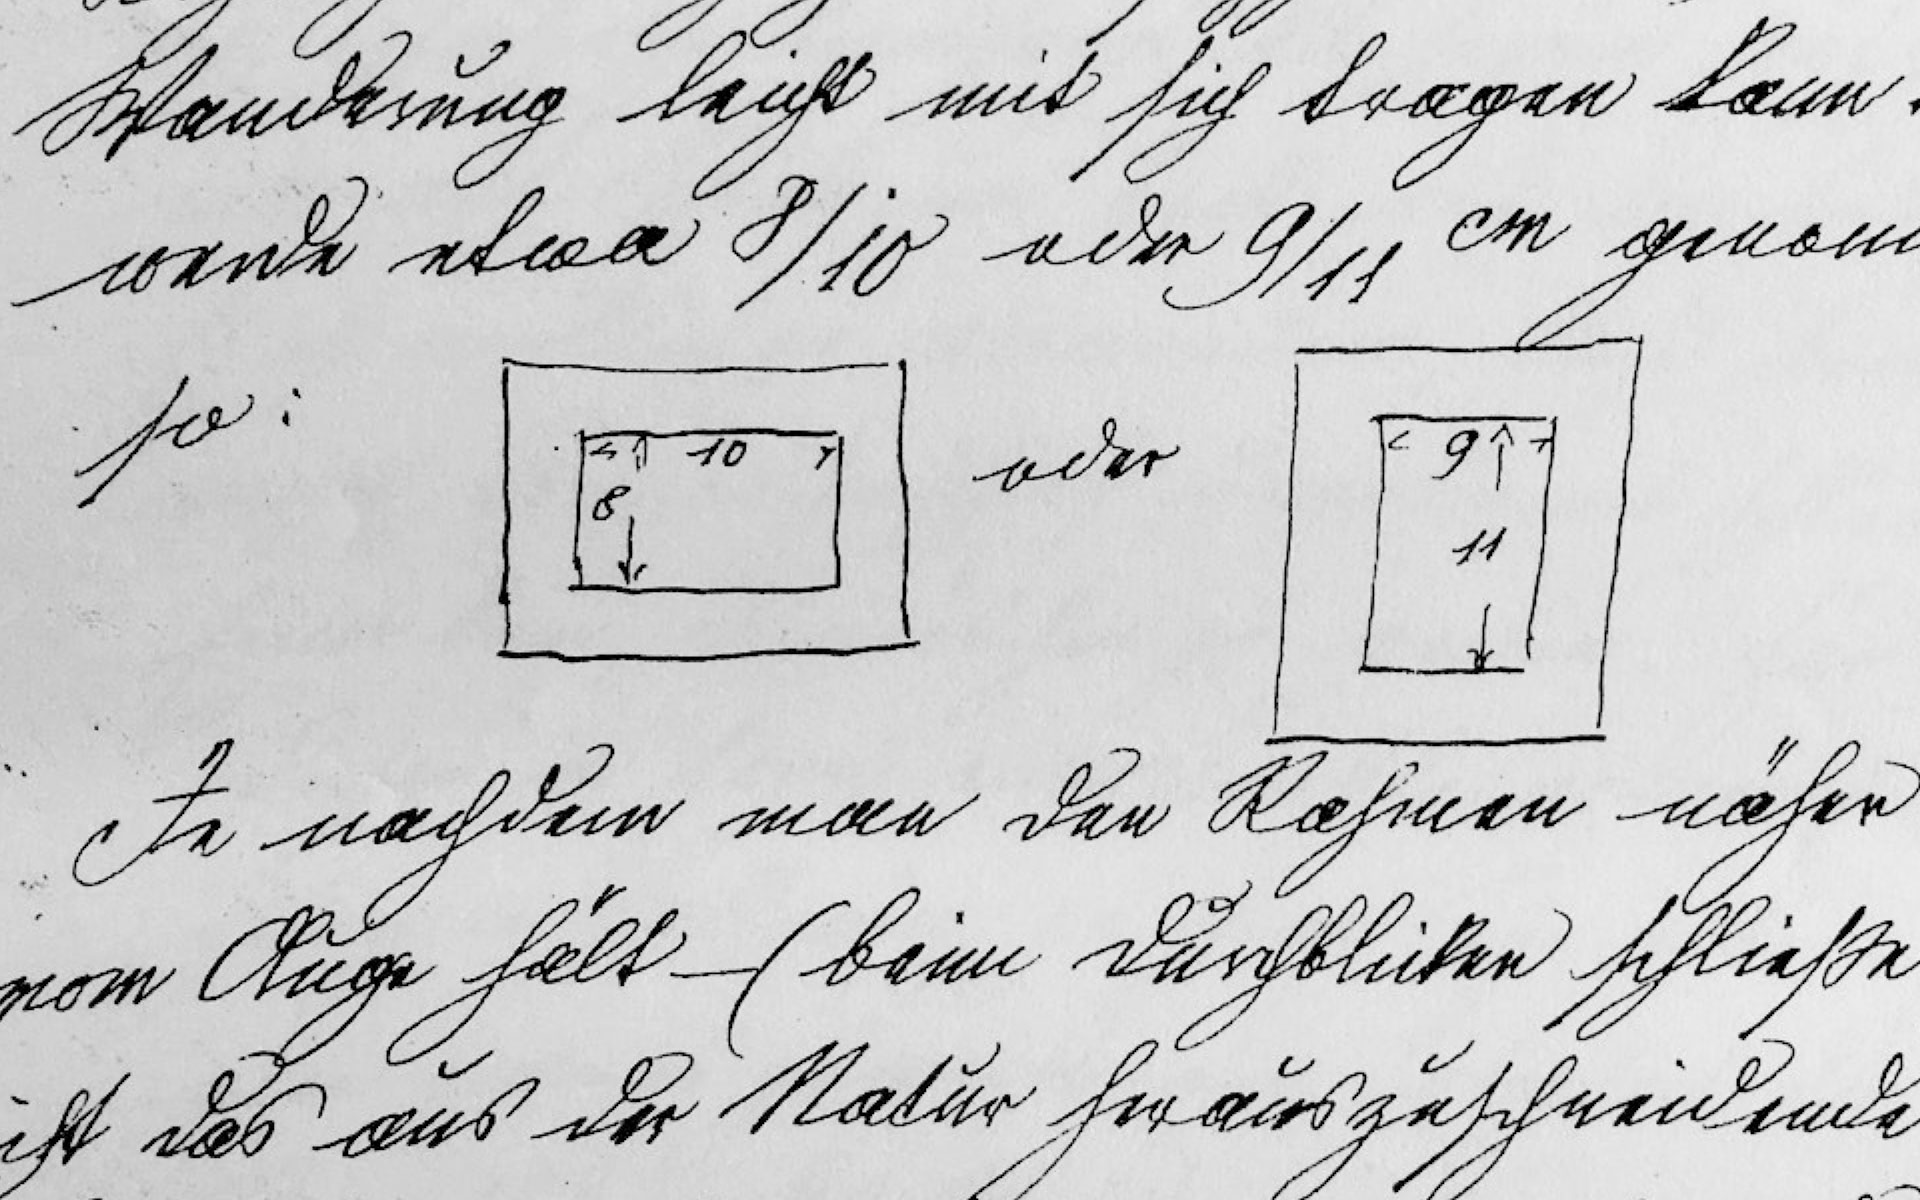 Wanderung leicht mit sich tragen kann.
werde etwa 8/10 oder 9/11 cm genom
so:
10
8
oder
9
11
Je nachdem man den Rahmen näher
vom Auge hält – (beim Durchblicken schließe
icht das aus der Natur herauszuschneidende